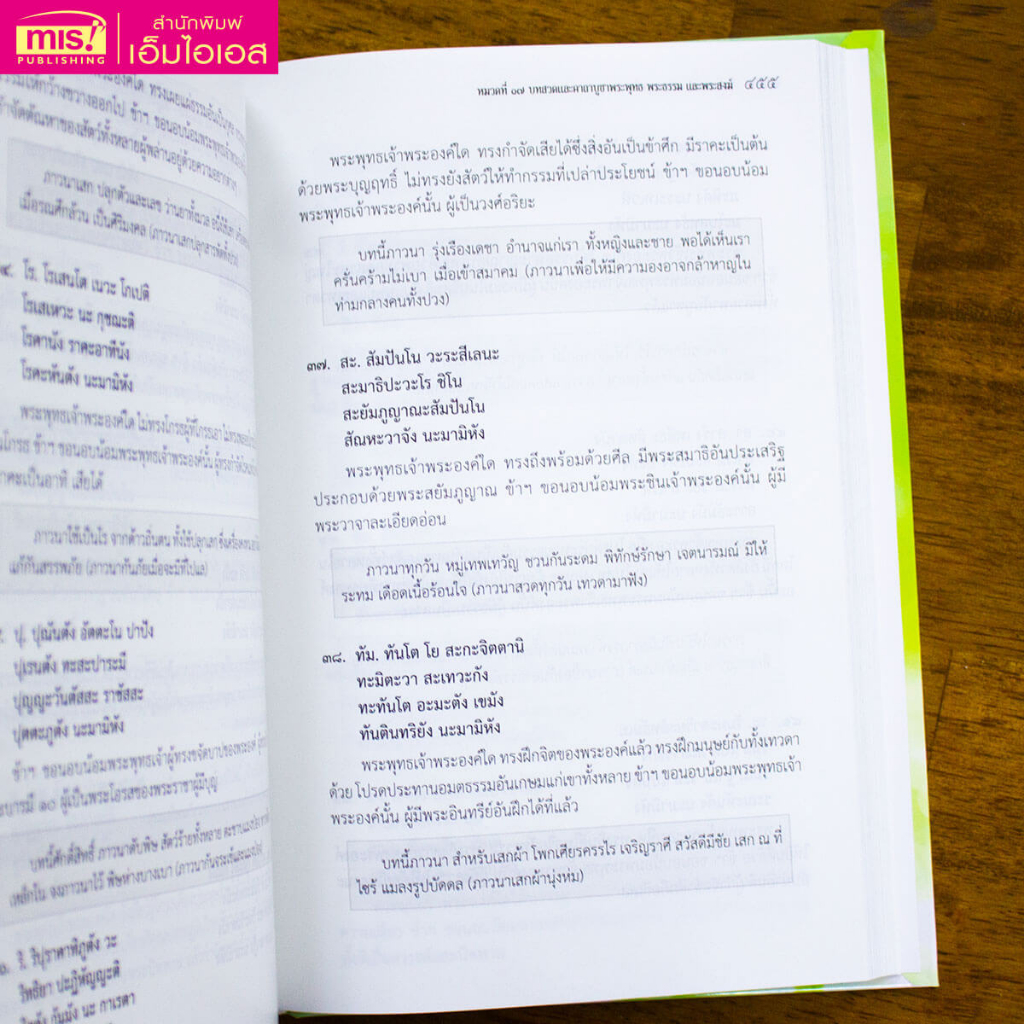 mis!
PUBLISHING
สำนักพิมพ์
เอ็มไอเอส
ภาวนาเสก ปลุกตัวและเลข ว่านยาทั้งมวล
เมื่อรณศึกล้วน เป็นศิริมงคล
๔. โร. โรเสนโต เนวะ โกเปติ
โรเสเหวะ นะ กุชฌะติ
โรคานัง ราคะอาทีนัง
โรคะหันตัง นะมามิหัง
พระพุทธเจ้าพระองค์ใด ไม่ทรงโกรธผู้ที่โกรธเอา
ข้าฯ ขอนอบน้อมพระพุทธเจ้าพระองค์นั้น
คะเป็นอาทิ เสียได้
แก้กันสรรพภัย (ภาวนากันภัยเมื่อจะมีที่ไปแล)
ปุ. ปุณันตัง อัตตะโน ปาปัง
ปุเรนตัง ทะสะปาระมี
ปุญญะวันตัสสะ ราชัสสะ
ปุตตะภูตัง นะมามิหัง
ข้าฯ ขอนอบน้อมพระพุทธเจ้าผู้ทรงขจัดบาปของพระองค์
ะบารมี ๑๐ ผู้เป็นพระโอรสของพระราชาผู้มีบุญ
บทนี้ศักดิ์สิทธิ์ ภาวนาดับพิษ สัตว์ร้ายทั้งหลาย
ริ. ริปุราคาทิภูตัง วะ
ริทธิยา ปะฏิหัญญะติ
กัมมัง นะ กาเรตา
หมวดที่ ๑๗ บทสวดและคาถาบูชาพระพุทธ พระธรรม และพระสงฆ์ ๔๕๕
พระพุทธเจ้าพระองค์ใด ทรงกำจัดเสียได้ซึ่งสิ่งอันเป็นข้าศึก มีราคะเป็นต้น
ด้วยพระบุญฤทธิ์ ไม่ทรงยังสัตว์ให้ทำกรรมที่เปล่าประโยชน์ ข้าฯ ขอนอบน้อม
พระพุทธเจ้าพระองค์นั้น ผู้เป็นวงศ์อริยะ
บทนี้ภาวนา รุ่งเรืองเดชา อำนาจแก่เรา ทั้งหญิงและชาย พอได้เห็นเรา
ครั่นคร้ามไม่เบา เมื่อเข้าสมาคม (ภาวนาเพื่อให้มีความองอาจกล้าหาญใน
ท่ามกลางคนทั้งปวง)
๓๗. สะ. สัมปันโน วะระสีเลนะ
สะมาธิปะวะโร ชิโน
สะยัมภูญาณะสัมปันโน
สัณหะวาจัง นะมามิหัง
พระพุทธเจ้าพระองค์ใด ทรงถึงพร้อมด้วยศีล มีพระสมาธิอันประเสริฐ
ประกอบด้วยพระสยัมภูญาณ ข้าฯ ขอนอบน้อมพระชินเจ้าพระองค์นั้น ผู้มี
พระวาจาละเอียดอ่อน
ภาวนาทุกวัน หมู่เทพเทวัญ ชวนกันระดม พิทักษ์รักษา เจตนารมณ์ มิให้
ระทม เดือดเนื้อร้อนใจ (ภาวนาสวดทุกวัน เทวดามาฟัง)
๓๘. ทัม. ทันโต โย สะกะจิตตานิ
ทะมิตะวา สะเทวะกัง
ทะทันโต อะมะตัง เขมัง
ทันตินทริยัง นะมามิหัง
พระพุทธเจ้าพระองค์ใด ทรงฝึกจิตของพระองค์แล้ว ทรงฝึกมนุษย์กับทั้งเทวดา
ด้วย โปรดประทานอมตธรรมอันเกษมแก่เขาทั้งหลาย ข้าฯ ขอนอบน้อมพระพุทธเจ้า
พระองค์นั้น ผู้มีพระอินทรีย์อันฝึกได้ที่แล้ว
บทนี้ภาวนา สำหรับเสกผ้า โพกเศียรครรไร เจริญราศี สวัสดีมีชัย เสก ณ ที่
ไซร้ แมลงรูปบัดดล (ภาวนาเสกผ้านุ่งห่ม)